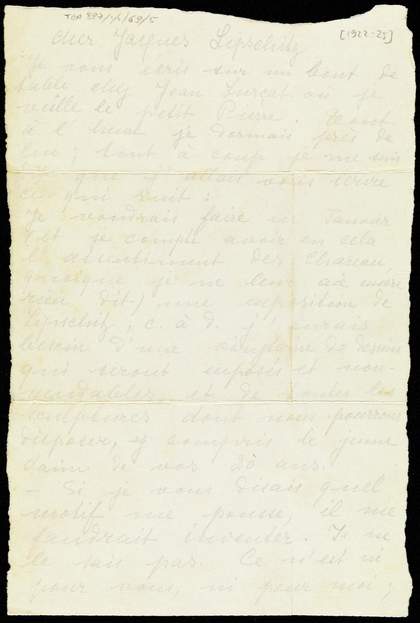 TGA 897/1/1/69/5
[1922-25]
cher Jacques Lipschitz
Je vous écris sur un bout de
table chez Jean Lurçat où je
veille le petit Pierre. Tout
à l'heure je dormais près de
lui; tout à coup je me suis
dit que j'allais vous écrire
ce qui suit:
Je voudrais faire en Janvier
(et je compte avoir en cela
l'assentiment des Chareau,
quoique je ne leur aie encore
rien dit) une exposition de
Lipschitz, c. à d. j'aurais
besoin d'une vingtaine de dessins
qui seront exposés et non
vendables et de toutes les
sculptures dont nous pourrons
disposer, y compris le jeune
daim de vos 20 ans.
- Si je vous disais quel
motif me pousse, il me
faudrait inventer. Je ne
le sais pas. Ce n'est ni
pour vous, ni pour moi;